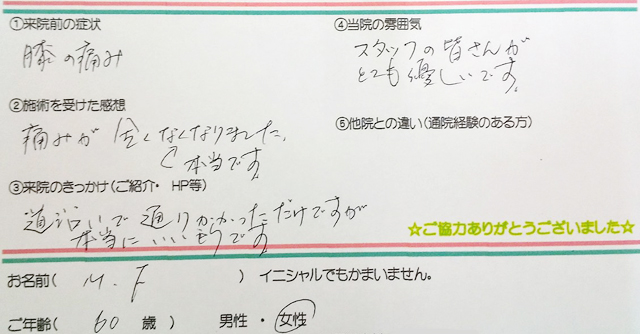 ①来院前の症状
膝の痛み
②施術を受けた感想
痛みが全くなくなりました。
本当です。
③来院のきっかけ(ご紹介・ HP等)
道沿いで通りかかっただけですが
本当にいい
です
④当院の雰囲気
スタッフの皆さんが
とても優しいです。
⑤他院との違い(通院経験のある方)
☆ご協力ありがとうございました☆
お名前( M.F ) イニシャルでもかまいません。
ご年齢( 60 歳 ) 男性 ・ 女性